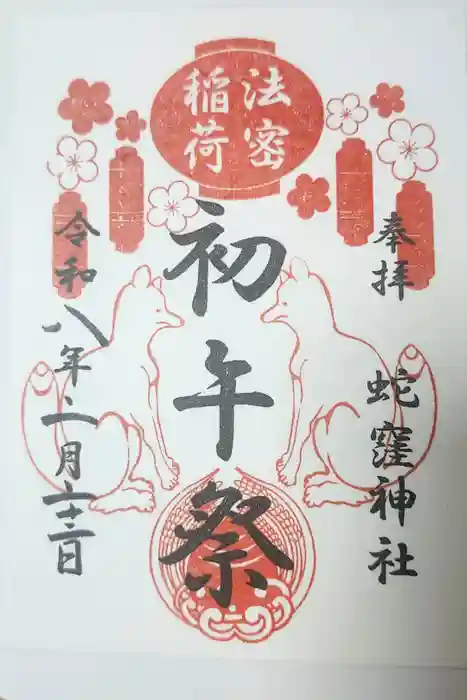 奉拝
蛇窪神社
法密
稲荷
初午祭
令和八年二月二十三日